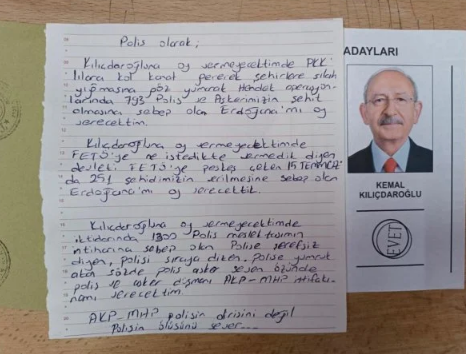 Polis olarak;
Kılıçdaroğluna oy vermeyecektimde PKK
lılara kol kanat gererek şehirlere silah
yığmasına göz yumarak Hendek operasyon-
larında 793 Polis ve Askerimizin şehit
olmasına sebep olan Erdoğana'mı oy
verecektim.
Kılıçdaroğluna oy vermeyecektimde
FETÖ'ye ne istedikte vermedik diyen
devleti FETÖ'ye peşkeş çeken 15 TEMMUZ
da 251 şehidimizin verilmesine sebep olan
Erdoğana'mı oy verecektik.
Kılıçdaroğluna oy vermeyecektimde
iktidarında 1300 Polis meslektaşımın
intiharına sebep olan Polise şerefsiz
diyen, polisi sıraya dizen, polise yumruk
atan sözde polis asker seven özünde
polis ve asker düşmanı AKP-MHP ittifakı-
namı verecektim
AKP-MHP polisin dirisini değil
Polisin ölüsünü sever....
ADAYLARI
KEMAL
KILIÇDAROĞLU
EVET